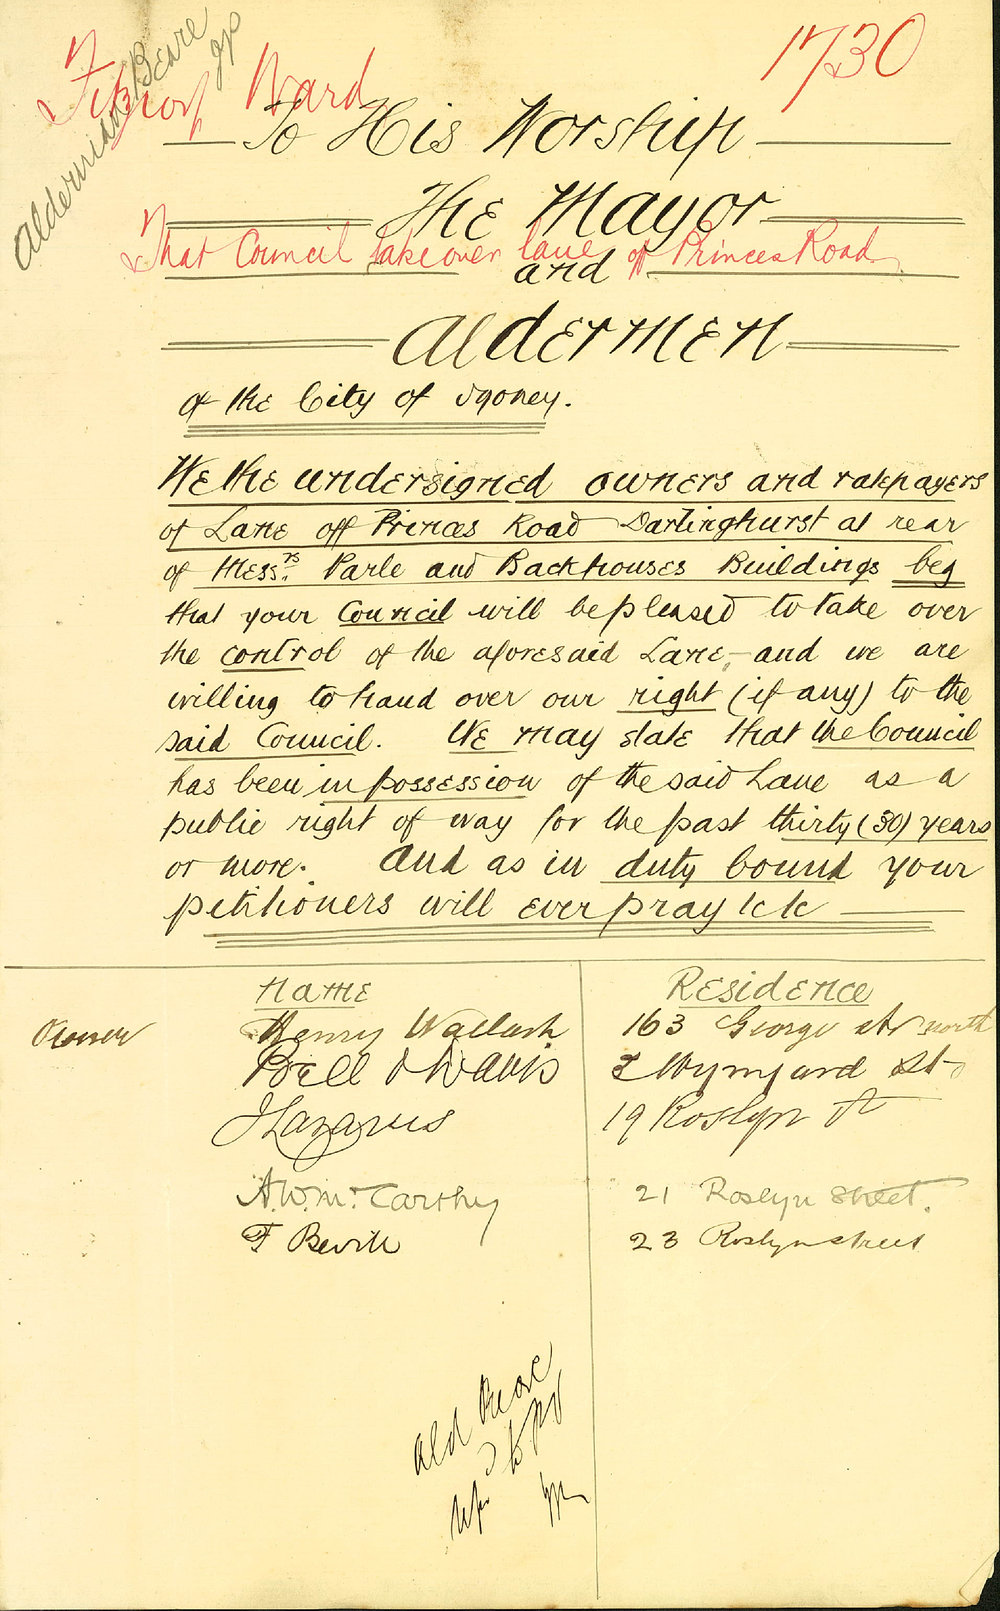 Fitzroy Ward
1730
Alderman Beare
To His Worship
The Mayor
That Council take over lane off Princes Road
and
Aldermen
of the City of Sydney.
We the undersigned owners and ratepayers
of Lane off Princes Road Darlinghurst at rear
of Messrs. Parle and Backhouses Buildings beg
that your Council will be pleased to take over
the control of the aforesaid Lane, and we are
willing to hand over our right (if any) to the
said Council. We may state that the Council
has been in possession of the said Lane as a
public right of way for the past thirty (30) years
or more. And as in duty bound your
petitioners will ever pray &c &c
Name Residence
Owner Henry Wallach 163 George str north
Bell & Davis Wynyard St
J Lazarus 19 Roslyn St
A. W. McCarthy 21 Roslyn Street.
F Bevill 23 Roslyn street
Ald Beare